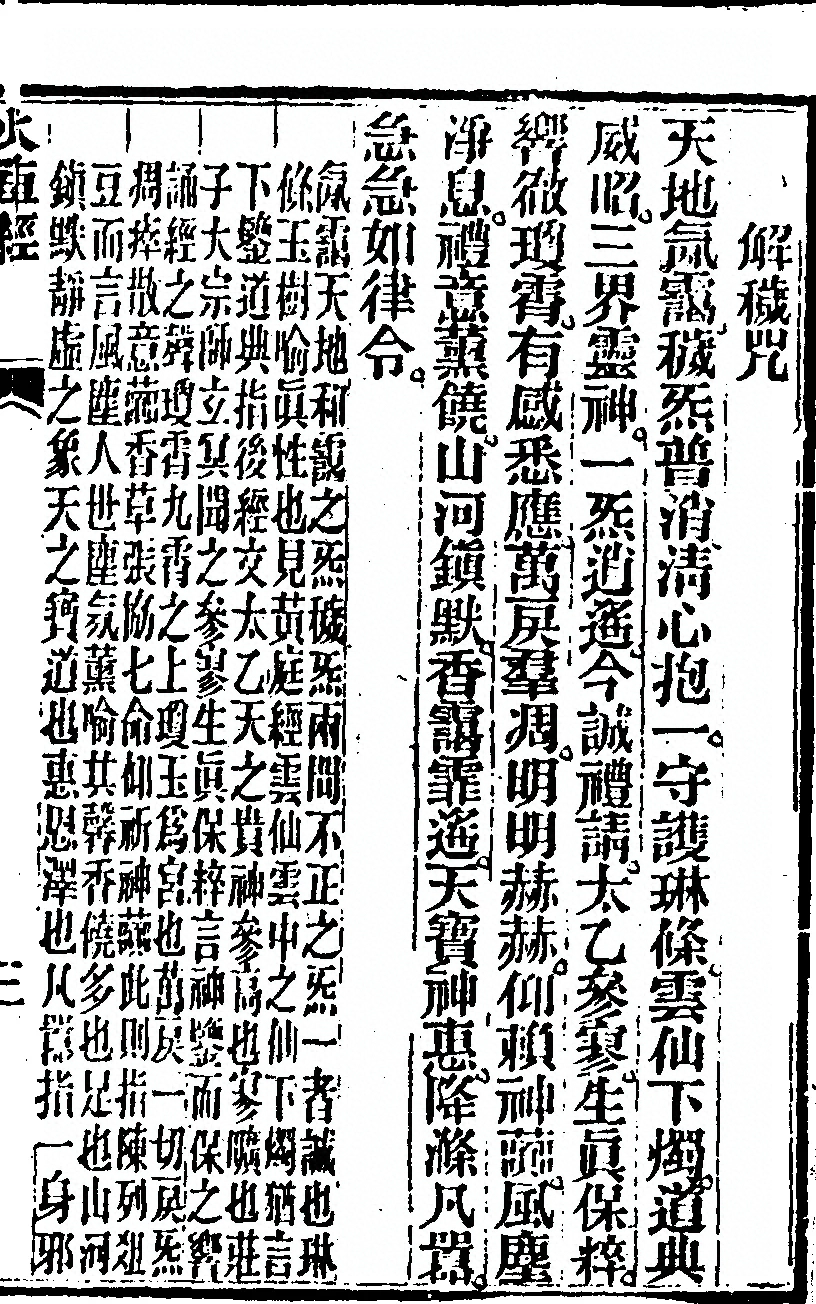 解穢咒
天地氤靄穢炁普消清心抱一守護琳條雲仙下燭道典
威昭三界靈神一炁逍遙今誠禮請太乙參寥生眞保粹
響徹瓊霄有感悉應萬戾羣凋明明赫赫仰賴神蘤風塵
淨息禮意薰饒山河鎮默香靄霏遙天寶神惠降滌凡囂
急急如律令
氤靄天地和靄之炁穢炁兩間不正之炁一者誠也琳
條玉樹喻眞性也見黃庭經雲仙雲中之仙下燭猶言
下鑒道典指後經文太乙天之貴神參高也寥曠也莊
子大宗師立冥聞之參寥生眞保粹言神鑒而保之響
誦經之聲瓊霄九霄之上瓊玉爲宮也萬戾一切戾炁
凋瘁散意香草張協七命仰祈神此則指陳列俎
豆而言風塵人世塵氛薰喻其馨香饒多也足也山河
鎮默靜虛之象天之寶道也惠恩澤也凡囂指一身邪
火車經
二